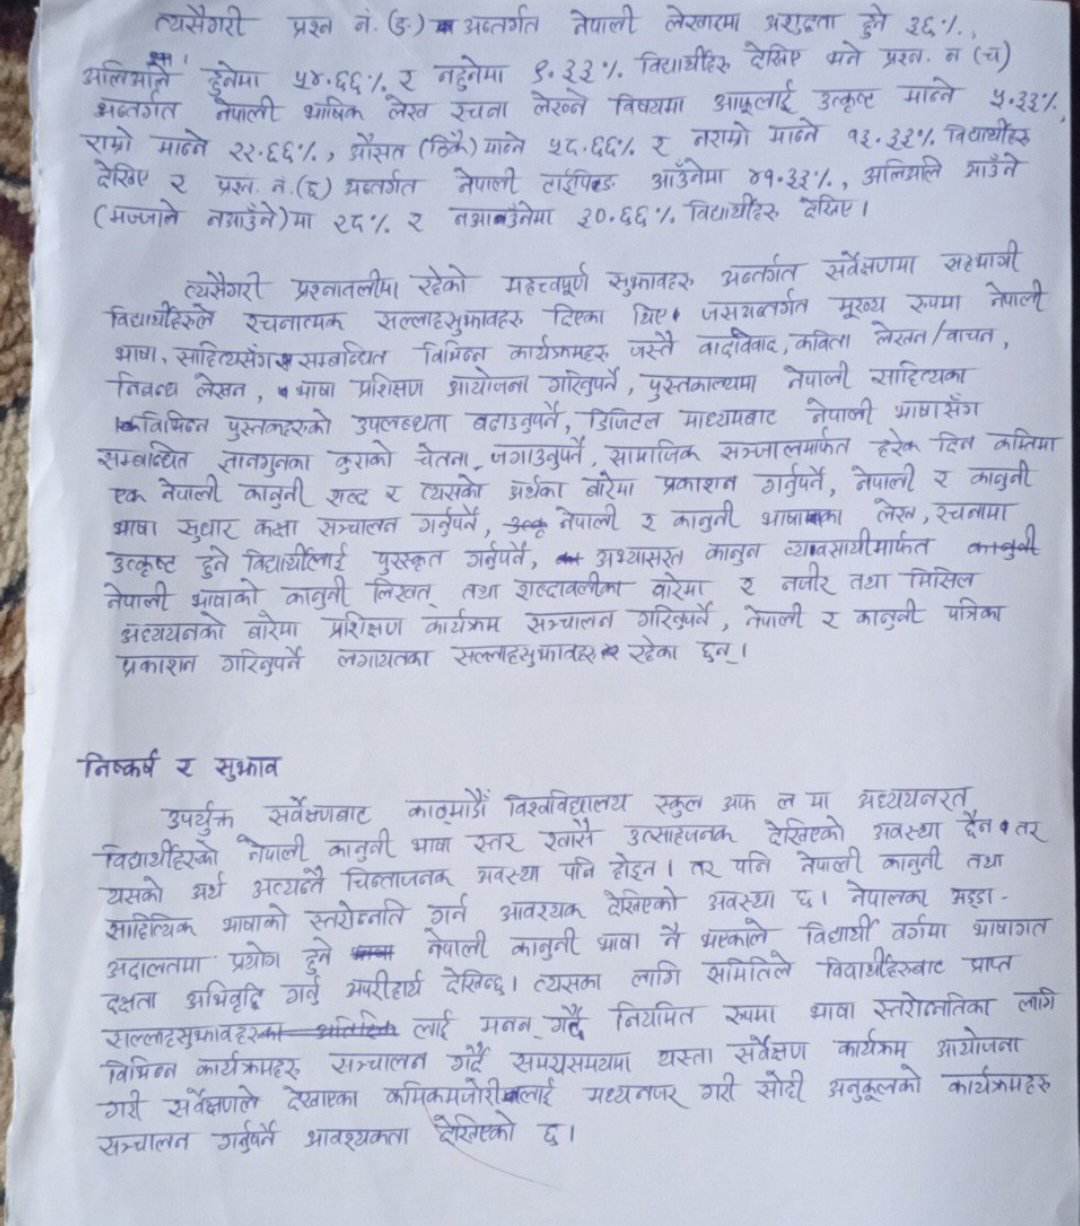 त्यसैगरी प्रश्न नं. (ङ) अन्तर्गत नेपाली लेखाइमा अशुद्धता हुने ३६%,
अलिअलि हुनेमा ५४.६६% र नहुनेमा ९.३३% विद्यार्थीहरु देखिए भने प्रश्न. न (च)
अन्तर्गत नेपाली भाषिक लेख रचना लेख्ने विषयमा आफूलाई उत्कृष्ट मान्ने ५.३३%,
राम्रो मान्ने २२.६६%, औसत (ठिकै) मान्ने ५८.६६% र नराम्रो मान्ने १३.३३% विद्यार्थीहरु
देखिए र प्रश्न. नं. (छ) अन्तर्गत नेपाली टाईपिङ आउँनेमा ४१.३३%, अलिअलि आउँने
(मज्जाले नआउँने) मा २८% र नआउँनेमा ३०.६६% विद्यार्थीहरु देखिए।
त्यसैगरी प्रश्नावलीमा रहेको महत्त्वपूर्ण सुझावहरु अन्तर्गत सर्वेक्षणमा सहभागी
विद्यार्थीहरुले रचनात्मक सल्लाहसुझावहरु दिएका थिए। जसअन्तर्गत मूख्य रुपमा नेपाली
भाषा, साहित्यसँग सम्बन्धित विभिन्न कार्यक्रमहरु जस्तै वादविवाद, कविता लेखन/वाचन,
निबन्ध लेखन, भाषा प्रशिक्षण आयोजना गरिनुपर्ने, पुस्तकालयमा नेपाली साहित्यका
विभिन्न पुस्तकहरुको उपलब्धता बढाउनुपर्ने, डिजिटल माध्यमबाट नेपाली भाषासँग
सम्बन्धित ज्ञानगुनका कुराको चेतना जगाउनुपर्ने, सामाजिक सञ्जालमार्फत हरेक दिन कम्तिमा
एक नेपाली कानुनी शब्द र त्यसको अर्थका बारेमा प्रकाशन गर्नुपर्ने, नेपाली र कानुनी
भाषा सुधार कक्षा सञ्चालन गर्नुपर्ने, नेपाली र कानुनी भाषाका लेख, रचनामा
उत्कृष्ट हुने विद्यार्थीलाई पुरस्कृत गर्नुपर्ने, अभ्यासरत कानुन व्यवसायीमार्फत
नेपाली भाषाको कानुनी लिखत् तथा शब्दावलीका बारेमा र नजीर तथा मिसिल
अध्ययनको बारेमा प्रशिक्षण कार्यक्रम सञ्चालन गरिनुपर्ने, नेपाली र कानुनी पत्रिका
प्रकाशन गरिनुपर्ने लगायतका सल्लाहसुझावहरु रहेका छन्।
निष्कर्ष र सुझाव
उपर्युक्त सर्वेक्षणबाट काठमाडौं विश्वविद्यालय स्कुल अफ ल मा अध्ययनरत
विद्यार्थीहरुको नेपाली कानुनी भाषा स्तर खासै उत्साहजनक देखिएको अवस्था छैन तर
यसको अर्थ अत्यन्तै चिन्ताजनक अवस्था पनि होइन। तर पनि नेपाली कानुनी तथा
साहित्यिक भाषाको स्तरोन्नति गर्न आवश्यक देखिएको अवस्था छ। नेपालका अड्डा-
अदालतमा प्रयोग हुने नेपाली कानुनी भाषा नै भएकाले विद्यार्थी वर्गमा भाषागत
दक्षता अभिवृद्धि गर्नु अपरीहार्य देखिन्छ। त्यसका लागि समितिले विद्यार्थीहरुबाट प्राप्त
सल्लाहसुझावहरु लाई मनन् गर्दै नियमित रुपमा भाषा स्तरोन्नतिका लागि
विभिन्न कार्यक्रमहरु सञ्चालन गर्दै समयसमयमा यस्ता सर्वेक्षण कार्यक्रम आयोजना
गरी सर्वेक्षणले देखाएका कमिकमजोरीलाई मध्यनजर गरी सोही अनुकूलको कार्यक्रमहरु
सञ्चालन गर्नुपर्ने आवश्यकता देखिएको छ।